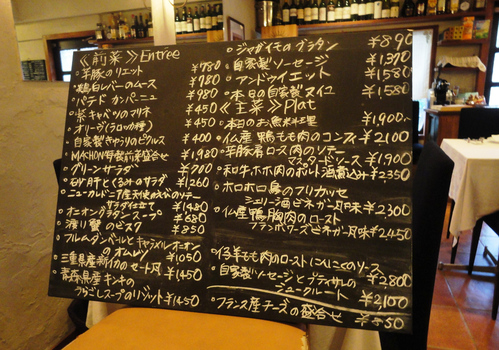 ≪前菜≫Entrée
・半豚のリエット ¥780
・鶏白レバーのムース ¥980
・パテドカンパーニュ ¥980
・紫キャベツのマリネ ¥450
・オリーブ(ラロッカ種) ¥450
・自家製きゅうりのピクルス ¥400
・MACHON特製前菜盛合せ ¥1,980
・グリーンサラダ ¥700
・砂肝とくるみのサラダ ¥1260
・ニューカレドニア産天使の海老のソテー
サラダ仕立 ¥1480
・オニオングラタンスープ ¥680
・渡り蟹のビスク ¥850
・フルムダンベールとキャラメルオニオン
のオムレツ ¥1050
・三重県産新イカのセート風 ¥1450
・青森県産キンキの
うらごしスープのリゾット ¥1450
・ジャガイモのグラタン ¥890
・自家製ソーセージ ¥1370
・アンドゥイエット ¥1580
・本日の自家製 ¥1580
≪主菜≫Plat
・本日のお魚料理 ¥1900~
・仏産 鴨もも肉のコンフィ ¥2100
・半豚肩ロース肉のソテー
マスタードソース ¥1900
・和牛ホホ肉のポルト酒煮込み ¥2350
・ホロホロ鳥のフリカッセ
シェリー酒ビネガー風味 ¥2300
・仏産鴨胸肉のロースト
フランボワーズビネガー風味 ¥2450
・仔羊もも肉のロースト にんにくのソース ¥2800
・自家製ソーセージとプティサレの
シュークルート ¥2,100
・フランス産チーズの盛合せ